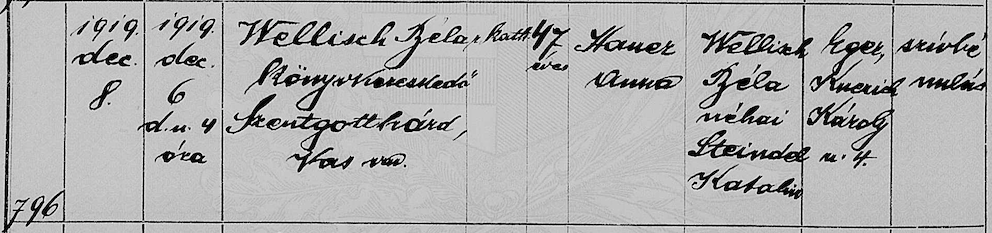 796
1919.
dec.
8.
1919.
dec.
6
d.u. 4
óra
Wellisch Béla
könyvkereskedő
Szentgotthárd,
Vas vm.
r. kath.
47
éves
Hauer
Anna
Wellisch
Béla
néhai
Steindel
Katalin
Eger,
Knezich
Károly
u. 4.
szívbé
nulás